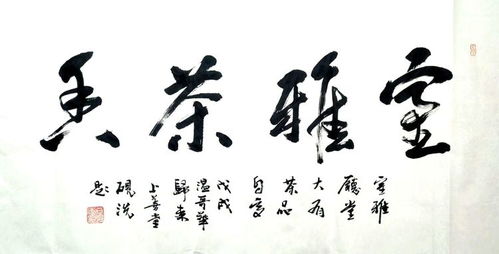 室雅茶香
室雅
廳堂
大有
茶品
自
戊戌
温哥華
歸来
上善堂
硯洗
題